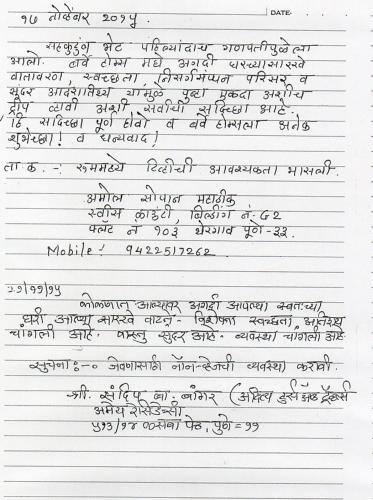 १७ नोव्हेंबर २०१५
DATE:
सहकुटुंब भेट पहिल्यांदाच गणपतीपुळेला
आलो. बर्वे होम्स मधे अगदी घरच्यासारखे
वातावरण, स्वच्छता, निसर्गसंपन्न परिसर व
सुंदर आदरातिथ्य यामुळे पुन्हा एकदा अशीच
ट्रीप व्हावी अशी सर्वांची सदिच्छा आहे.
हि सदिच्छा पूर्ण होवो व बर्वे होम्सला अनेक
शुभेच्छा! व धन्यवाद!
ता.क. -: रूममध्ये टिव्हीची आवश्यकता भासली.
अमोल सोपान
स्वीस काउंटी, बिल्डींग नं. G2
फ्लॅट नं ९०३ थेरगाव पुणे-३३.
Mobile:- 9422517262
२१/११/१५
कोकणात आल्यावर अगदी आपल्या स्वतःच्या
घरी आल्या सारखे वाटले. विशेषतः स्वच्छता, अतिशय
चांगली आहे. वास्तु सुंदर आहे. व्यवस्था चांगली आहे
सुचना:-० जेवणासाठी नॉन-व्हेजची व्यवस्था करावी.
श्री. संदिप बा. बांगर (आदित्य टुर्स अँड ट्रॅव्हल्स
अमेय रेसिडेन्सी
५१३/१४ कसबा पेठ, पुणे = ११